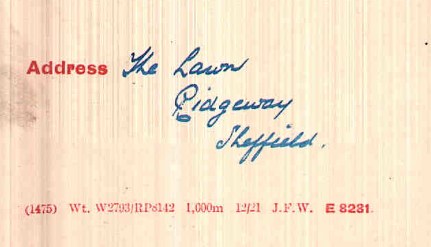 Address The Lawn
Ridgeway
Sheffield.
(1475) Wt. W2793/RP8142 1,000m 12/21 J.F.W. E 8231.